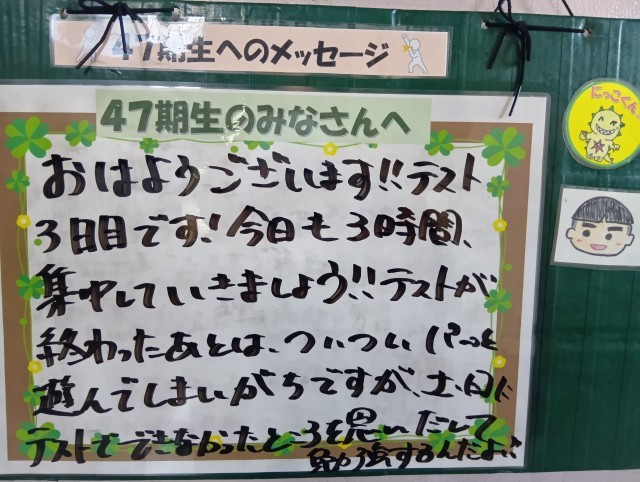 47期生へのメッセージ
47期生のみなさんへ
にっこくん
おはようございます!!テスト
3日目です!今日も3時間、
集中していきましょう!!テストが
終わったあとは、ついついパーっと
遊んでしまいがちですが、土、日に
テストでできなかったところを思いだして
勉強するんだよ!!